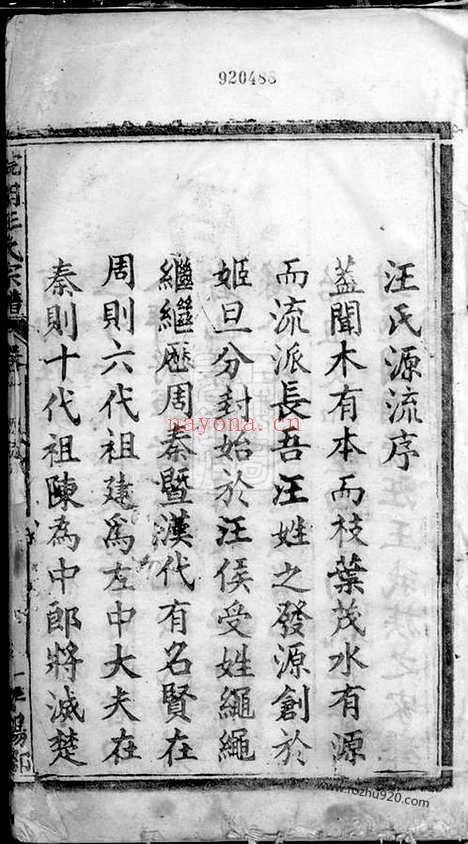 920488
汪氏源流序
蓋聞木有本而枝葉茂水有源
而流派長吾汪姓之發源創於
姬旦分封始於汪侯受姓繩繩
繼繼歷周秦暨漢代有名賢在
周則六代祖建爲左中大夫在
秦則十代祖陳為中郎將滅楚
汪氏宗譜
nayona.cn
www.rozhu920.com